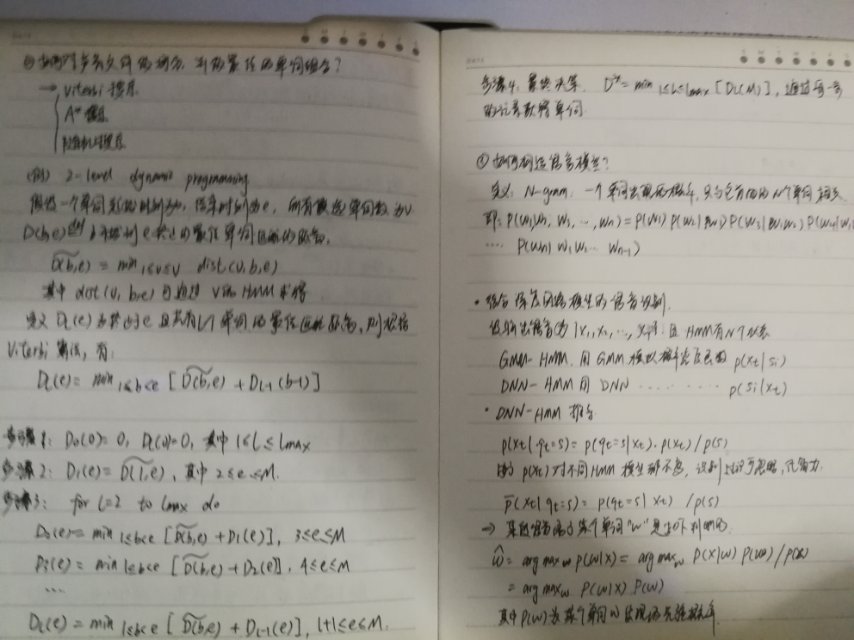 ①如何对单词的组合,寻找最佳的单词组合?
→ Viterbi 搜索
A* 搜索
随机搜索
(例) 2-level dynamic programming
假设一个单词起始时刻为b,结束时刻为e,所有候选单词数为V
D(b,e) 为从b到e之间的最佳单词匹配的距离。
D̃(b,e) = min 1≤v≤V dist(v,b,e)
其中 dist(v,b,e) 可通过 V的HMM求得
定义 DL(e) 为终于e且共有L个单词的最佳匹配距离,则根据
Viterbi 算法,有:
DL(e) = min 1≤b<e [D̃(b,e) + DL-1(b-1)]
步骤1: D0(0)=0, DL(0)=0, 其中 1≤L≤Lmax
步骤2: D1(e) = D̃(1,e), 其中 2≤e≤M.
步骤3: for L=2 to Lmax do
D2(e) = min 1≤b<e [D̃(b,e) + D1(e)], 3≤e≤M
D3(e) = min 1≤b<e [D̃(b,e) + D2(e)], 4≤e≤M
...
DL(e) = min 1≤b<e [D̃(b,e) + DL-1(e)], L+1≤e≤M.
步骤4: 最终决策. D* = min 1≤L≤Lmax [DL(M)], 通过
单词
②如何构造语言模型?
定义: N-gram. 一个单词出现的概率,只与它前面的N个单词相关
即: P(W1,W2,W3,...,Wn) = P(W1) P(W2|W1) P(W3|W1W2) P(W4|W1
.... P(Wn|W1W2...Wn-1)
• 结合深度网络模型的语音识别.
设输出语音为 {X1,X2,...,XT}, 且HMM有N个状态
GMM-HMM 用GMM模拟概率密度函数 p(xt|si)
DNN-HMM 用DNN ......... p(si|xt)
• DNN-HMM 推导
p(xt|qt=s) = p(qt=s|xt)·p(xt)/p(s)
因为 p(xt) 对不同HMM模型都不变,识别时可忽略
p̄(xt|qt=s) = p(qt=s|xt)/p(s)
→ 某段语音属于某个单词"W"是由下列
ŵ = arg maxw P(W|X) = arg maxw P(X|W) P(W)/P(X)
= arg maxw P(W|X) P(W)
其中P(W)为某个单词W出现的先验概率